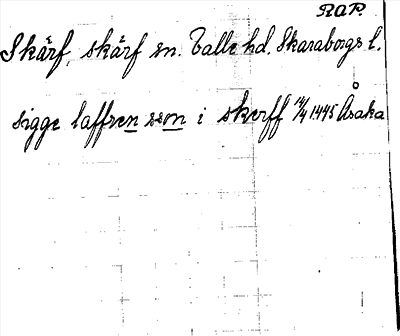 RAP.
Skärf, skärf sn. Valle hd. Skaraborgs l.
sigge laffren son i skerff 14/4 1445 Åsaka